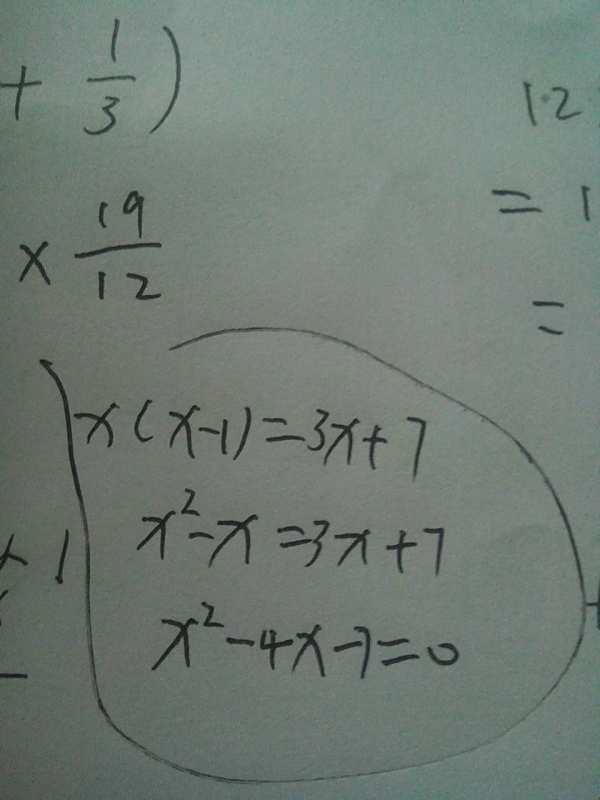 + 1/3)
1.2
× 19/12
= 1
=
x(x-1)=3x+7
x²-x=3x+7
x²-4x-7=0